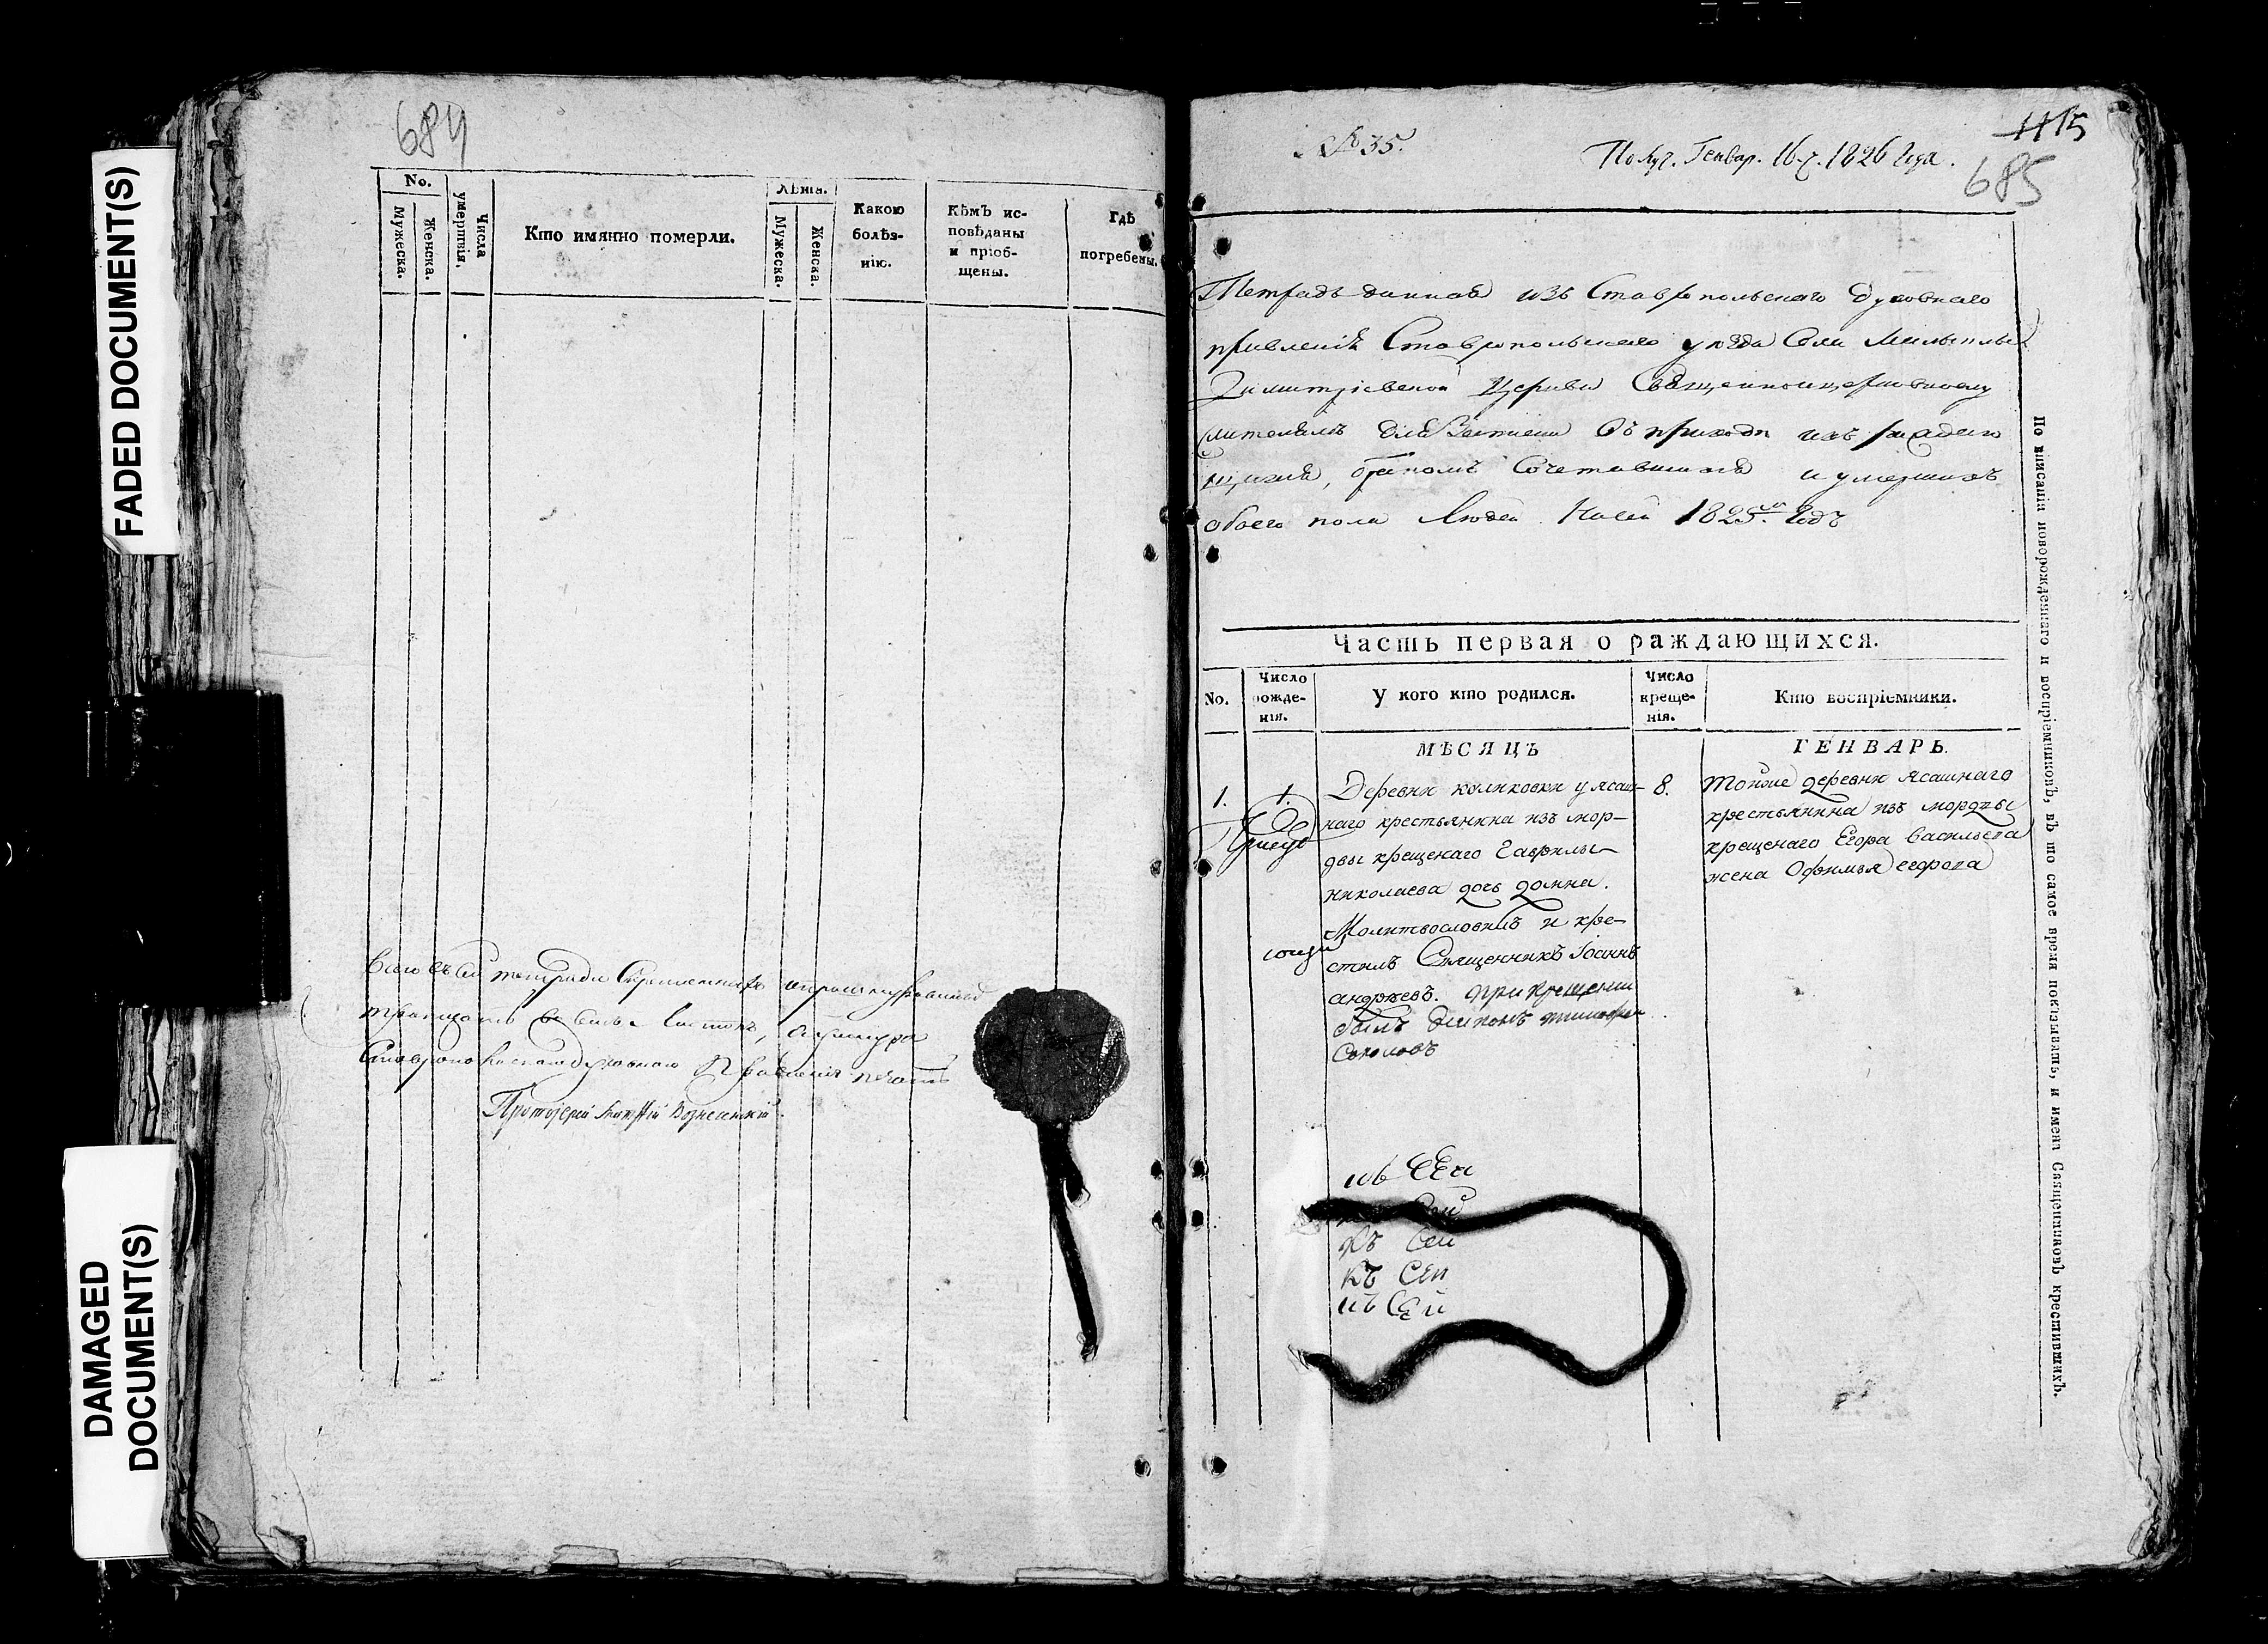 FADED DOCUMENT(S)
DAMAGED
DOCUMENT(S)
684
No.
Мужеска.
Женска.
Числа
умертвія.
Кто имянно померли.
Лѣта.
Мужеска.
Женска.
Какою
болѣз-
нію.
Кѣмъ ис-
повѣданы
и пріоб-
щены.
Гдѣ
погребены.
Всего въ сей тетради скрепленныхъ
листовъ,
Ставропольскаго духовнаго Правленія печать
Протоіерей Вознесенскій
№ 35.
Получ. Генвар. 16 ч. 1826 года.
1115
685
Тетрадь данная изъ Ставропольскаго духовнаго
правленія Ставропольскаго уѣзда Села
Димитріевской Церкви Священноцерковно служителямъ
для записки въ приходѣ ихъ раждаю
щихся, бракомъ сочетавшихся и умершихъ
обоего пола людей На сей 1825й годъ
Часть первая о раждающихся.
No.
Число
рожде-
нія.
У кого кто родился.
Число
креще-
нія.
Кто воспріемники.
МѢСЯЦЪ ГЕНВАРЬ.
1.
1.
Деревни коликовки у ясаш-
наго крестьянина изъ мор-
двы крещенаго Гаврилы
николаева дочь домна.
Молитвословилъ и кре-
стилъ Священникъ Іоаннъ
андрѣевъ. при крещении
былъ диаконъ тимофеи
Соколовъ
8.
тойже деревни ясашнаго
крестьянина изъ мордвы
крещенаго Егора васильева
жена Офимья егорова
къ Сей
къ Сей
По вписаніи новорожденнаго и воспріемниковъ, въ то самое время показывать, и имена Священниковъ крестившихъ.